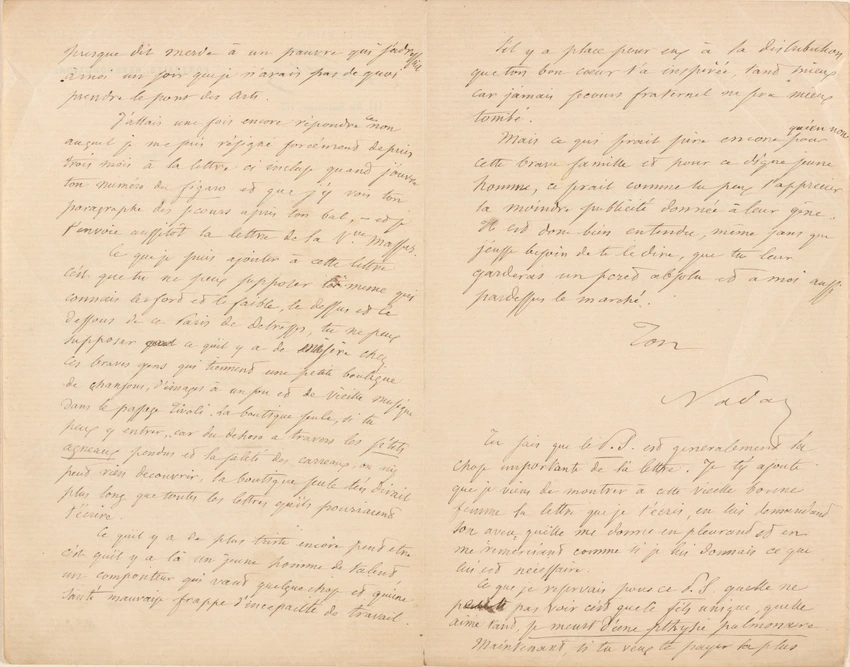 presque dit merde à un pauvre qui s'adressait
à moi un soir que je n'avais pas de quoi
prendre le pont des Arts.
J'allais une fois encore répondre le non
auquel je me suis résigné forcément depuis
trois mois à la lettre ci incluse quand j'ouvre
ton numéro du figaro et que j'y vois ton
paragraphe des secours après ton bal, – et je
t'envoie aussitôt la lettre de la Vve
Ce que je puis ajouter à cette lettre
c'est que tu ne peux supposer toi même qui
connais le fort et le faible, le dessus et le
dessous de ce Paris de Détresses, tu ne peux
supposer ce qu'il y a de misère chez
ces braves gens qui tiennent une petite boutique
de chansons, d'images à un sou et de vieille musique
dans le passage Tivoli. La boutique seule, si tu
peux y entrer, car du dehors à travers les petits
agneaux pendus et la saleté des carreaux, on n'y
peut rien découvrir, la boutique seule t'en dirait
plus long que toutes les lettres qu'ils pourraient
t'écrire.
Ce qu'il y a de plus triste encore peut etre
c'est qu'il y a là un jeune homme de talent
un compositeur qui vaud quelque chose et qu'une
santé mauvaise frappe d'incapacité de travail.
S'il y a place pour eux à la distribution
que ton bon cœur t'a inspirée, tant mieux
car jamais secours fraternel ne sera mieux
tombé.
Mais ce qui serait pire encore qu'un non pour
cette brave famille et pour ce digne jeune
homme, ce serait comme tu peux l'apprécier
la moindre publicité donnée à leur gêne.
Il est donc bien entendu, même sans que
j'eusse besoin de te le dire, que tu leur
garderas un secret absolu et à moi aussi
pardessus le marché.
Ton
Nadar
Tu sais que le P.S. est généralement la
chose importante de la lettre. Je t'y ajoute
que je viens de montrer à cette vieille bonne
femme la lettre que je t'écris, en lui demandant
son aveu, qu'elle me donne en pleurant et en
me remerciant comme si je lui donnais ce que
lui est nécessaire.
Ce que je réservais pour ce P.S. qu'elle ne
pas voir c'est que le fils unique, qu'elle
aime tant, se meurt d'une phthysie pulmonaire
Maintenant, si tu veux te payer la plus